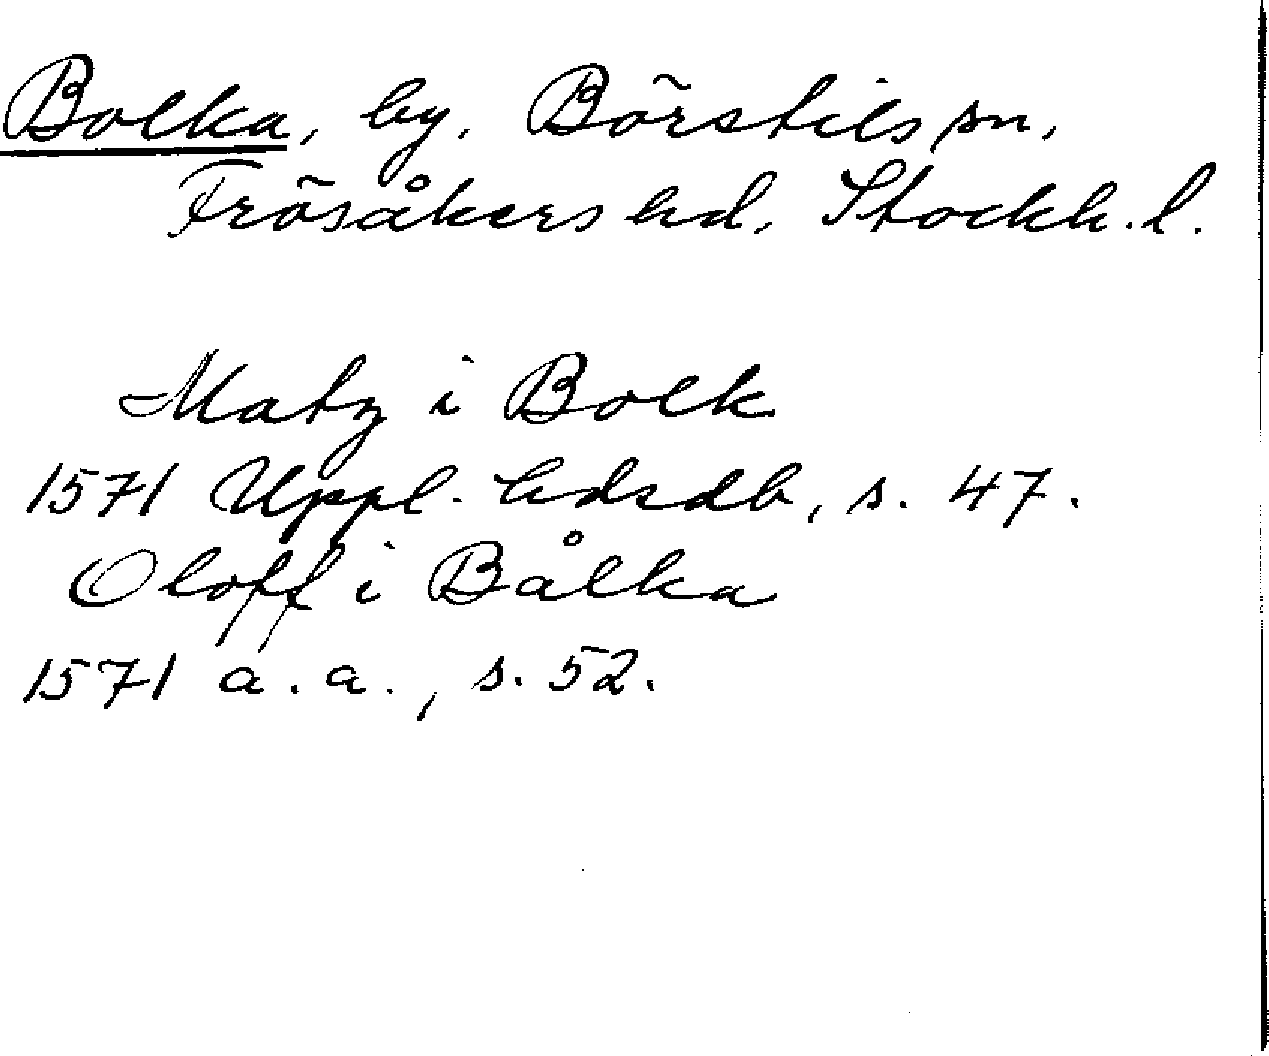 Bolka, by, Börstils sn,
Frösåkers hd, Stockh. l.
Matz i Bolk
1571 Uppl. hdsdb, s. 47.
Oloff i Bålka
1571 a. a., s. 52.